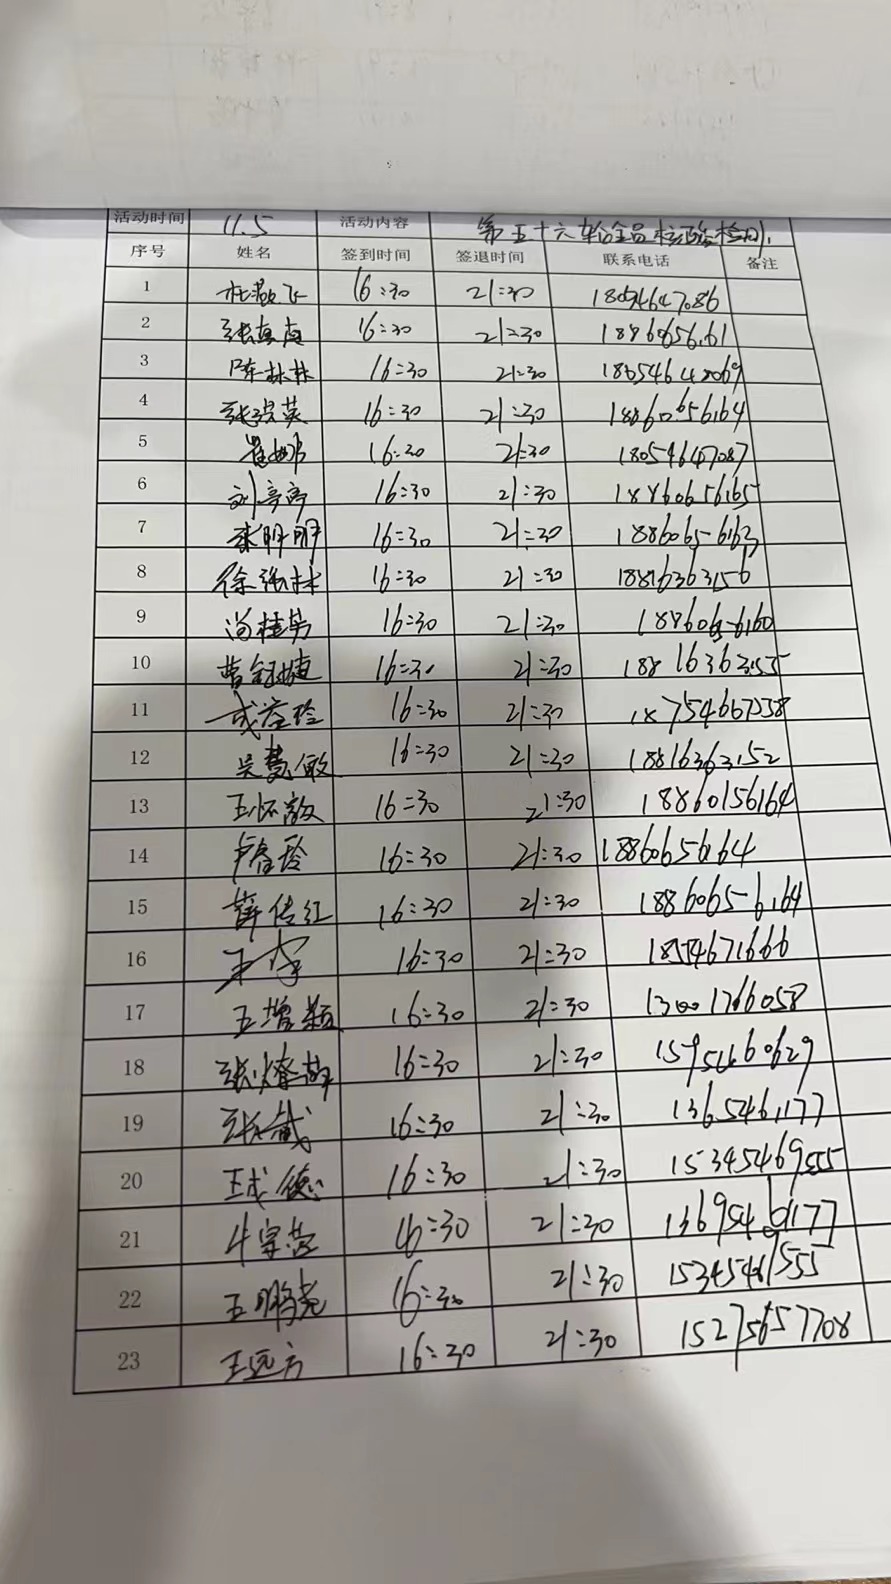 活动时间 11.5 活动内容 第五十六轮全员核酸检测
序号 姓名 签到时间 签退时间 联系电话 备注
1 飞 16:30 21:30 18054647086
2 张 16:30 21:30
3 陈林林 16:30 21:30
4 张瑞英 16:30 21:30 18860656164
5 崔娜 16:30 21:30 18054647087
6 刘亭亭 16:30 21:30 18860656165
7 李明明 16:30 21:30 18860656163
8 徐强林 16:30 21:30 18816363156
9 尚桂芳 16:30 21:30 18860656160
10 曹钰婕 16:30 21:30 18816363155
11 16:30 21:30 18754667558
12 吴慧敏 16:30 21:30 18816363152
13 王怀敏 16:30 21:30 18860156164
14 卢春玲 16:30 21:30 18860656164
15 薛传红 16:30 21:30 18860656164
16 王宇 16:30 21:30 18554671666
17 王增颖 16:30 21:30 13001766058
18 张 16:30 21:30
19 张 16:30 21:30
20 王成德 16:30 21:30 15345469555
21 牛 16:30 21:30 13695461177
22 王鹏尧 16:30 21:30
23 王远方 16:30 21:30 15275657708